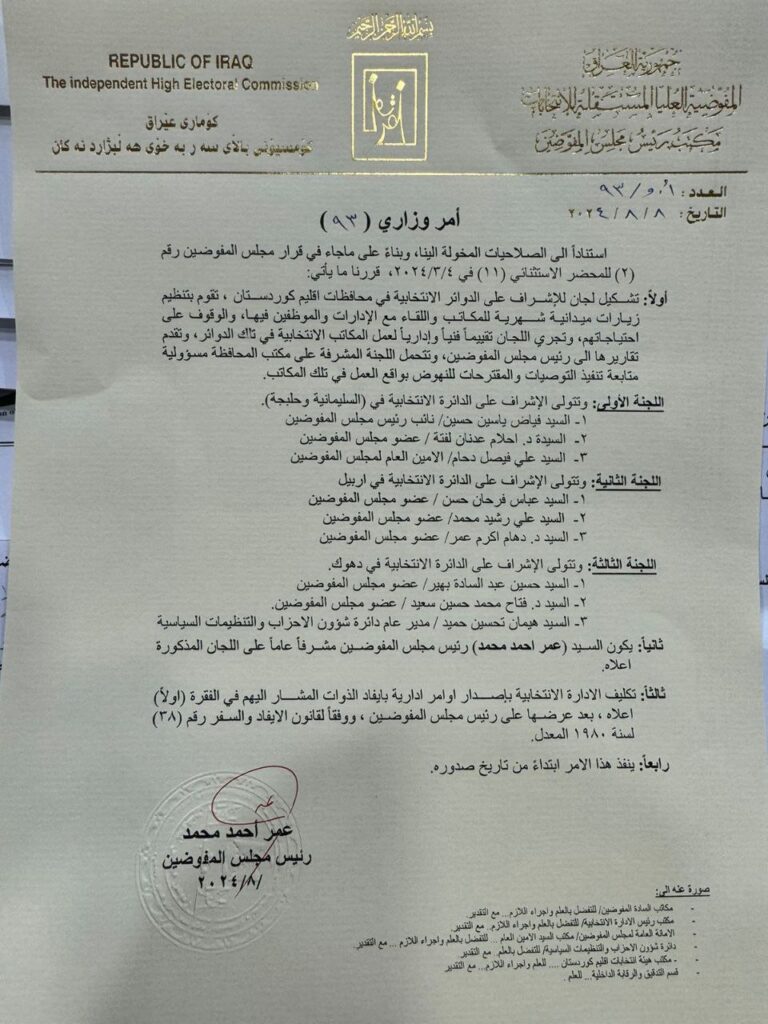 بسم الله الرحمن الرحيم
جمهورية العراق
المفوضية العليا المستقلة للانتخابات
مكتب رئيس مجلس المفوضين
REPUBLIC OF IRAQ
The independent High Electoral Commission
كوماری عێراق
كۆمسیۆنی بالآی سه ر به خۆی هه لبژارد نه كان
العدد: ٩٣/و.أ
التاريخ: ٢٠٢٤/٨/٨
أمر وزاري (٩٣)
استناداً الى الصلاحيات المخولة الينا، وبناءً على ماجاء في قرار مجلس المفوضين رقم
(٢) للمحضر الاستثنائي (١١) في ٢٠٢٤/٣/٤، قررنا ما يأتي:
أولاً: تشكيل لجان للإشراف على الدوائر الانتخابية في محافظات اقليم كوردستان ، تقوم بتنظيم
زيارات ميدانية شهرية للمكاتب واللقاء مع الإدارات والموظفين فيها، والوقوف على
احتياجاتهم، وتجري اللجان تقييماً فنياً وإدارياً لعمل المكاتب الانتخابية في تلك الدوائر، وتقدم
تقاريرها الى رئيس مجلس المفوضين، وتتحمل اللجنة المشرفة على مكتب المحافظة مسؤولية
متابعة تنفيذ التوصيات والمقترحات للنهوض بواقع العمل في تلك المكاتب.
اللجنة الأولى: وتتولى الإشراف على الدائرة الانتخابية في (السليمانية وحلبجة).
١- السيد فياض ياسين حسين/ نائب رئيس مجلس المفوضين
٢- السيدة د. احلام عدنان لفتة / عضو مجلس المفوضين
٣- السيد علي فيصل دحام/ الامين العام لمجلس المفوضين
اللجنة الثانية: وتتولى الإشراف على الدائرة الانتخابية في اربيل
١- السيد عباس فرحان حسن / عضو مجلس المفوضين
٢- السيد علي رشيد محمد/ عضو مجلس المفوضين
٣- السيد د. دهام اكرم عمر/ عضو مجلس المفوضين
اللجنة الثالثة: وتتولى الإشراف على الدائرة الانتخابية في دهوك.
١- السيد حسين عبد السادة بهير/ عضو مجلس المفوضين
٢- السيد د. فتاح محمد حسين سعيد / عضو مجلس المفوضين.
٣- السيد هيمان تحسين حميد / مدير عام دائرة شؤون الاحزاب والتنظيمات السياسية
ثانياً: يكون السيد (عمر احمد محمد) رئيس مجلس المفوضين مشرفاً عاماً على اللجان المذكورة
اعلاه.
ثالثاً: تكليف الادارة الانتخابية بإصدار اوامر ادارية بايفاد الذوات المشار اليهم في الفقرة (اولاً)
اعلاه ، بعد عرضها على رئيس مجلس المفوضين ، ووفقاً لقانون الايفاد والسفر رقم (٣٨)
لسنة ١٩٨٠ المعدل.
رابعاً: ينفذ هذا الامر ابتداءً من تاريخ صدوره.
عمر أحمد محمد
رئيس مجلس المفوضين
٢٠٢٤/٨/
صورة عنه الى:
- مكاتب السادة المفوضين/ للتفضل بالعلم واجراء اللازم... مع التقدير.
- مكتب رئيس الادارة الانتخابية/ للتفضل بالعلم واجراء اللازم.. مع التقدير.
- الامانة العامة لمجلس المفوضين/ مكتب السيد الامين العام ... للتفضل بالعلم واجراء اللازم ... مع التقدير.
- دائرة شؤون الاحزاب والتنظيمات السياسية/ للتفضل بالعلم.. مع التقدير.
- مكتب هيئة انتخابات اقليم كوردستان .... للعلم واجراء اللازم... مع التقدير
- قسم التدقيق والرقابة الداخلية... للعلم .